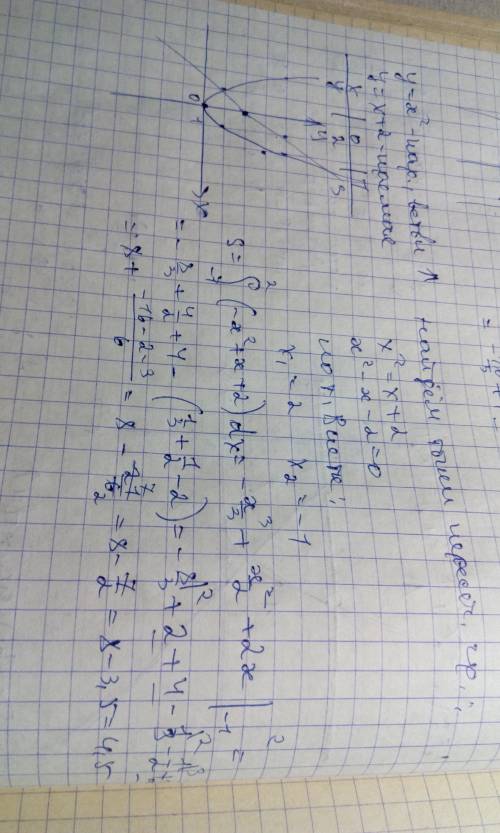 y = x² - пар., ветви ↑
y = x+2 - прямая
x | 0 | 1
y | 2 | 3
y
x
0 1
найдём точки пересеч. гр.:
x² = x + 2
x² - x - 2 = 0
по т. Виета:
x₁ = 2 x₂ = -1
S = ∫₋₁² (-x² + x + 2) dx = - x³/3 + x²/2 + 2x |₋₁² =
= - 8/3 + 4/2 + 4 - (1/3 + 1/2 - 2) = - 8/3 + 2 + 4 - 1/3 - 1/2 + 2 =
= 8 + (-16-2-3)/6 = 8 - 21/6 = 8 - 7/2 = 8 - 3,5 = 4,5